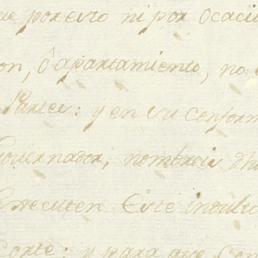 ue por esto ni por ocaci
on, ó apartamiento, no
Partes: y en su conform
Governador, nombreis
Executen Este indulto
Corte: y para que